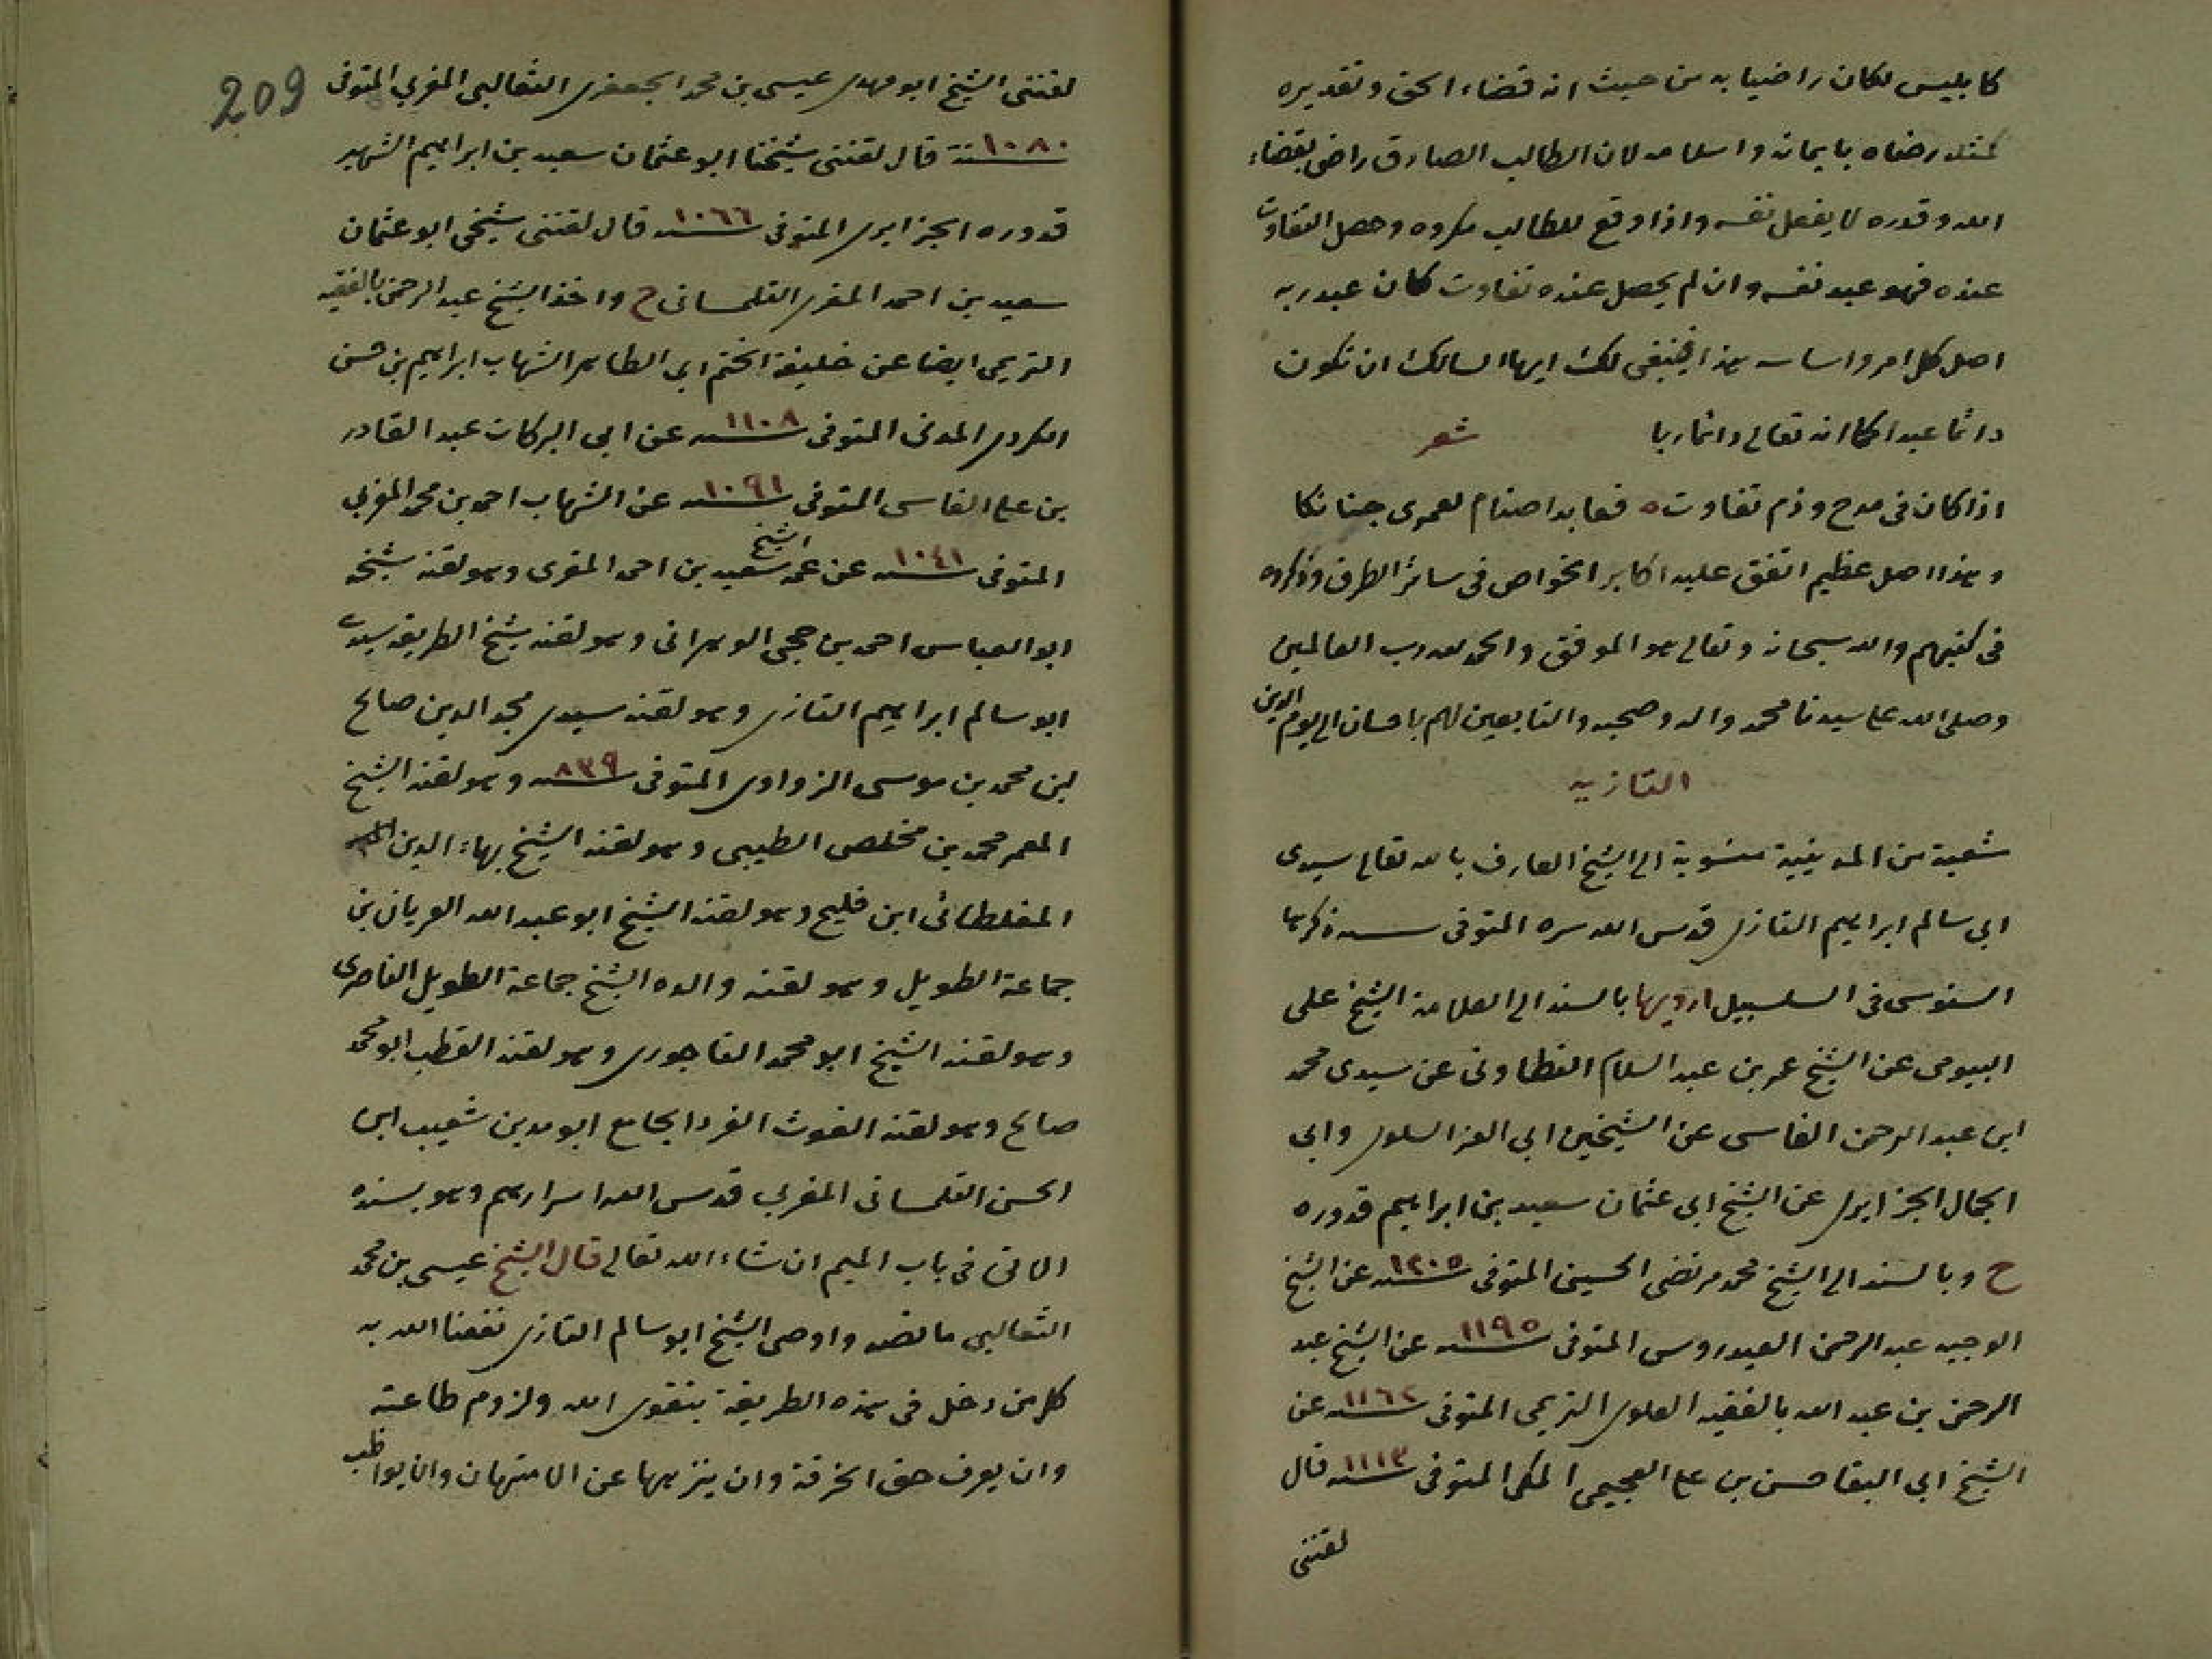 كابليس لكان راضيا به من حيث انه قضاء الحق وتقديره
كمثل رضاه بايمانه واسلامه لان الطالب الصادق راض بقضاء
الله وقدره لا بفعل نفسه واذا وقع للطالب مكروه وحصل التفاوت
عنده فهو عبد نفسه وان لم يحصل عنده تفاوت كان عبد ربه
اصل كل امر واساسه هذا فينبغى لك ايها السالك ان تكون
دائما عبدا كما انه تعالى دائما ربا شعر
اذا كان فى مدح وذم تفاوت ه فعابد اصنام لعمرى جنانكا
وهذا اصل عظيم اتفق عليه اكابر الخواص فى سائر الطرق وذكروه
فى كتبهم والله سبحانه وتعالى هو الموفق والحمد لله رب العالمين
وصلى الله على سيدنا محمد واله وصحبه والتابعين لهم باحسان الى يوم الدين
التازيه
شعبة من المدينية منسوبة الى الشيخ العارف بالله تعالى سيدى
ابى سالم ابراهيم التازى قدس الله سره المتوفى سنه ذكرها
السنوسى فى السلسبيل ارويها بالسند الى العلامة الشيخ على
البيومى عن الشيخ عمر بن عبد السلام التطاونى عن سيدى محمد
ابن عبد الرحمن الفاسى عن الشيخين ابى العز السلوى وابى
الجمال الجزايرى عن الشيخ ابى عثمان سعيد بن ابراهيم قدوره
ح وبالسند الى الشيخ محمد مرتضى الحسينى المتوفى سنه ١٢٠٥ عن الشيخ
الوجيه عبد الرحمن العيدروس المتوفى سنه ١١٩٥ عن الشيخ عبد
الرحمن بن عبد الله بالفقيه العلوى التريمى المتوفى سنه ١١٦٢ عن
الشيخ ابى البقا حسن بن على العجيمى المكى المتوفى سنه ١١١٣ قال
لقننى
209
لقننى الشيخ ابو مهدى عيسى بن محمد الجعفرى الثعالبى المغربى المتوفى
سنة ١٠٨٠ قال لقننى شيخنا ابو عثمان سعيد بن ابراهيم الشهير
قدوره الجزايرى المتوفى سنه ١٠٦٦ قال لقننى شيخى ابو عثمان
سعيد بن احمد المقرى التلمسانى ح واخذ الشيخ عبد الرحمن بالفقيه
التريمى ايضا عن خليفة الختم ابى الطاهر الشهاب ابراهيم بن حسن
الكردى المدنى المتوفى سنه ١١٠٨ عن ابى البركات عبد القادر
بن على الفاسى المتوفى سنه ١٠٩١ عن الشهاب احمد بن محمد المغربى
المتوفى سنه ١٠٤١ عن عمه الشيخ سعيد بن احمد المقرى وهو لقنه شيخه
ابو العباس احمد بن حجى الوهرانى وهو لقنه شيخ الطريقه سيدى
ابو سالم ابراهيم التازى وهو لقنه سيدى مجد الدين صالح
بن محمد بن موسى الزواوى المتوفى سنه ٨٣٩ وهو لقنه الشيخ
المعمر محمد بن مخلص الطيبى وهو لقنه الشيخ بهاء الدين
المغلطائى ابن قليج وهو لقنه الشيخ ابو عبد الله العريان بن
جماعة الطويل وهو لقنه والده الشيخ جماعة الطويل الناصرى
وهو لقنه الشيخ ابو محمد الفاجورى وهو لقنه القطب ابو محمد
صالح وهو لقنه الغوث الفرد الجامع ابو مدين شعيب ابى
الحسن التلمسانى المغربى قدس الله اسرارهم وهو بسنده
الاتى فى باب الميم ان شاء الله تعالى قال الشيخ عيسى بن محمد
الثعالبى ما نصه واوصى الشيخ ابو سالم التازى نفعنا الله به
كل من دخل فى هذه الطريقة بتقوى الله ولزوم طاعته
وان يعرف حق الخرقة وان ينزهها عن الامتهان وان يواظب